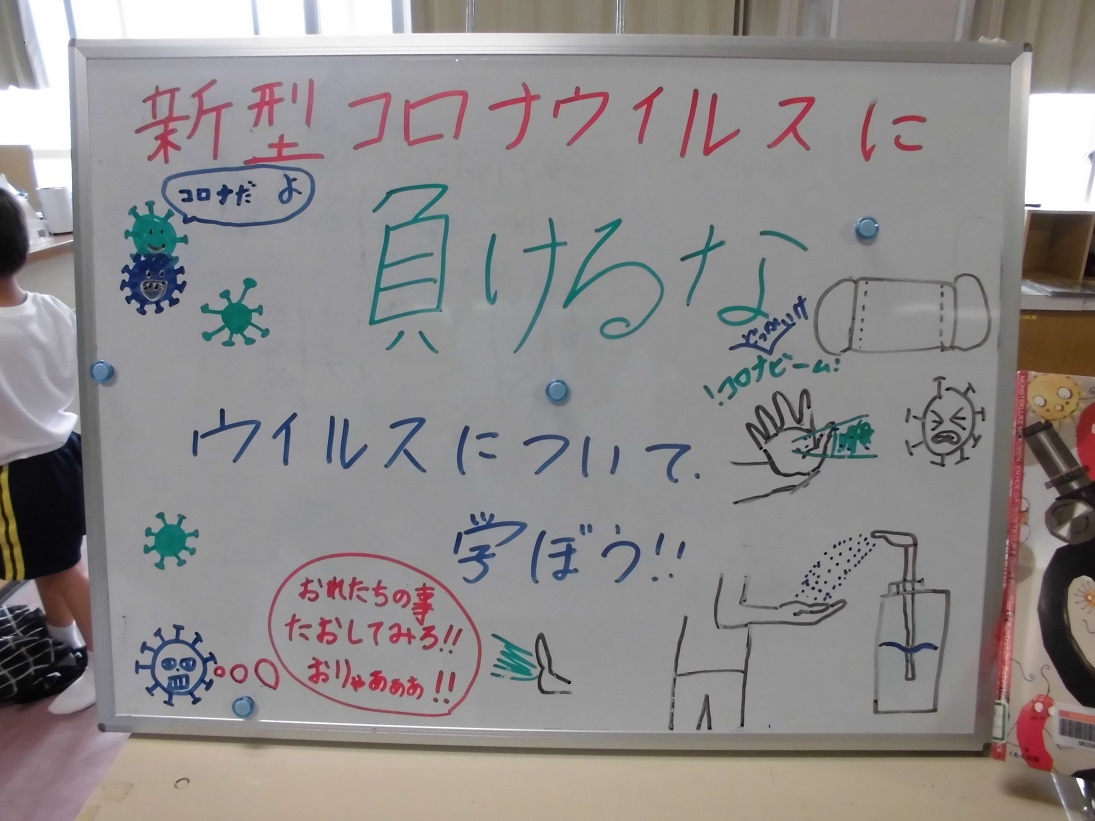 新型コロナウイルスに
コロナだよ
負けるな
!コロナビーム!
ウイルスについて
学ぼう!!
おれたちの事
たおしてみろ!!
おりゃあぁぁ!!